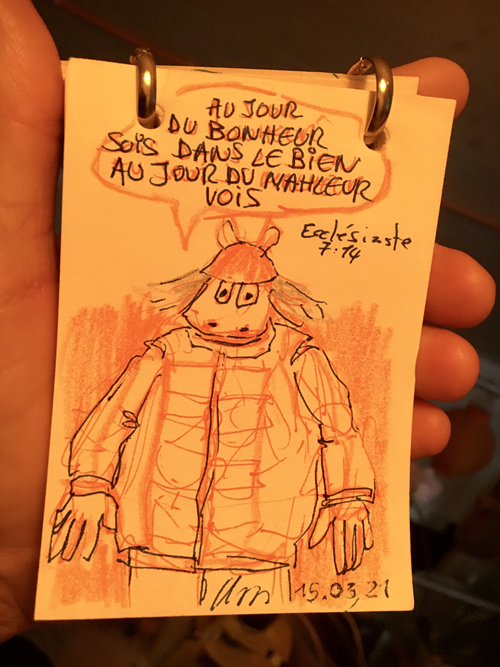 AU JOUR
DU BONHEUR
SOiS DANS LE BiEN
AU JOUR DU MAHLEUR
VOiS
Ecclésiaste
7:14
15.03,21